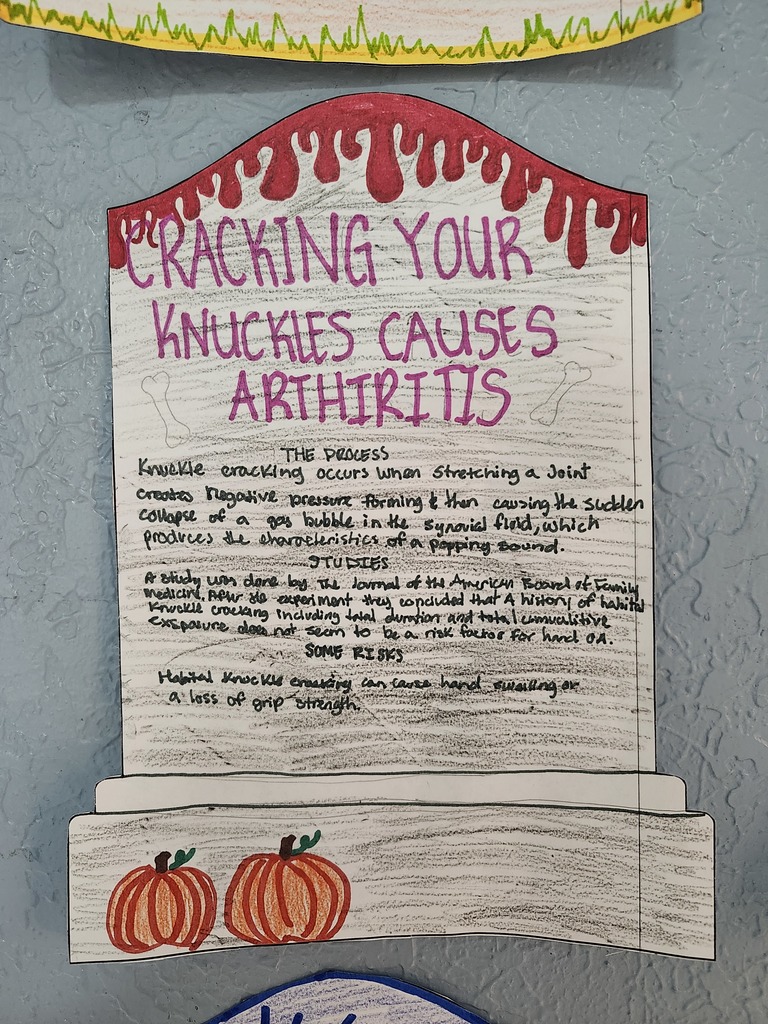 CRACKING YOUR
KNUCKLES CAUSES
ARTHIRITIS
THE PROCESS
Knuckle cracking occurs when stretching a Joint
creates Negative pressure forming & then causing the sudden
collapse of a gas bubble in the synovial fluid, which
produces the characteristics of a popping sound.
STUDIES
A study was done by The Journal of the American Board of Family
medicine. After the experiment they concluded that A history of habital
Knuckle cracking including total duration and total cumulitive
exsposure does not seem to be a risk factor for hand OA.
SOME RISKS
Habital Knuckle cracking can cause hand swelling or
a loss of grip strength.